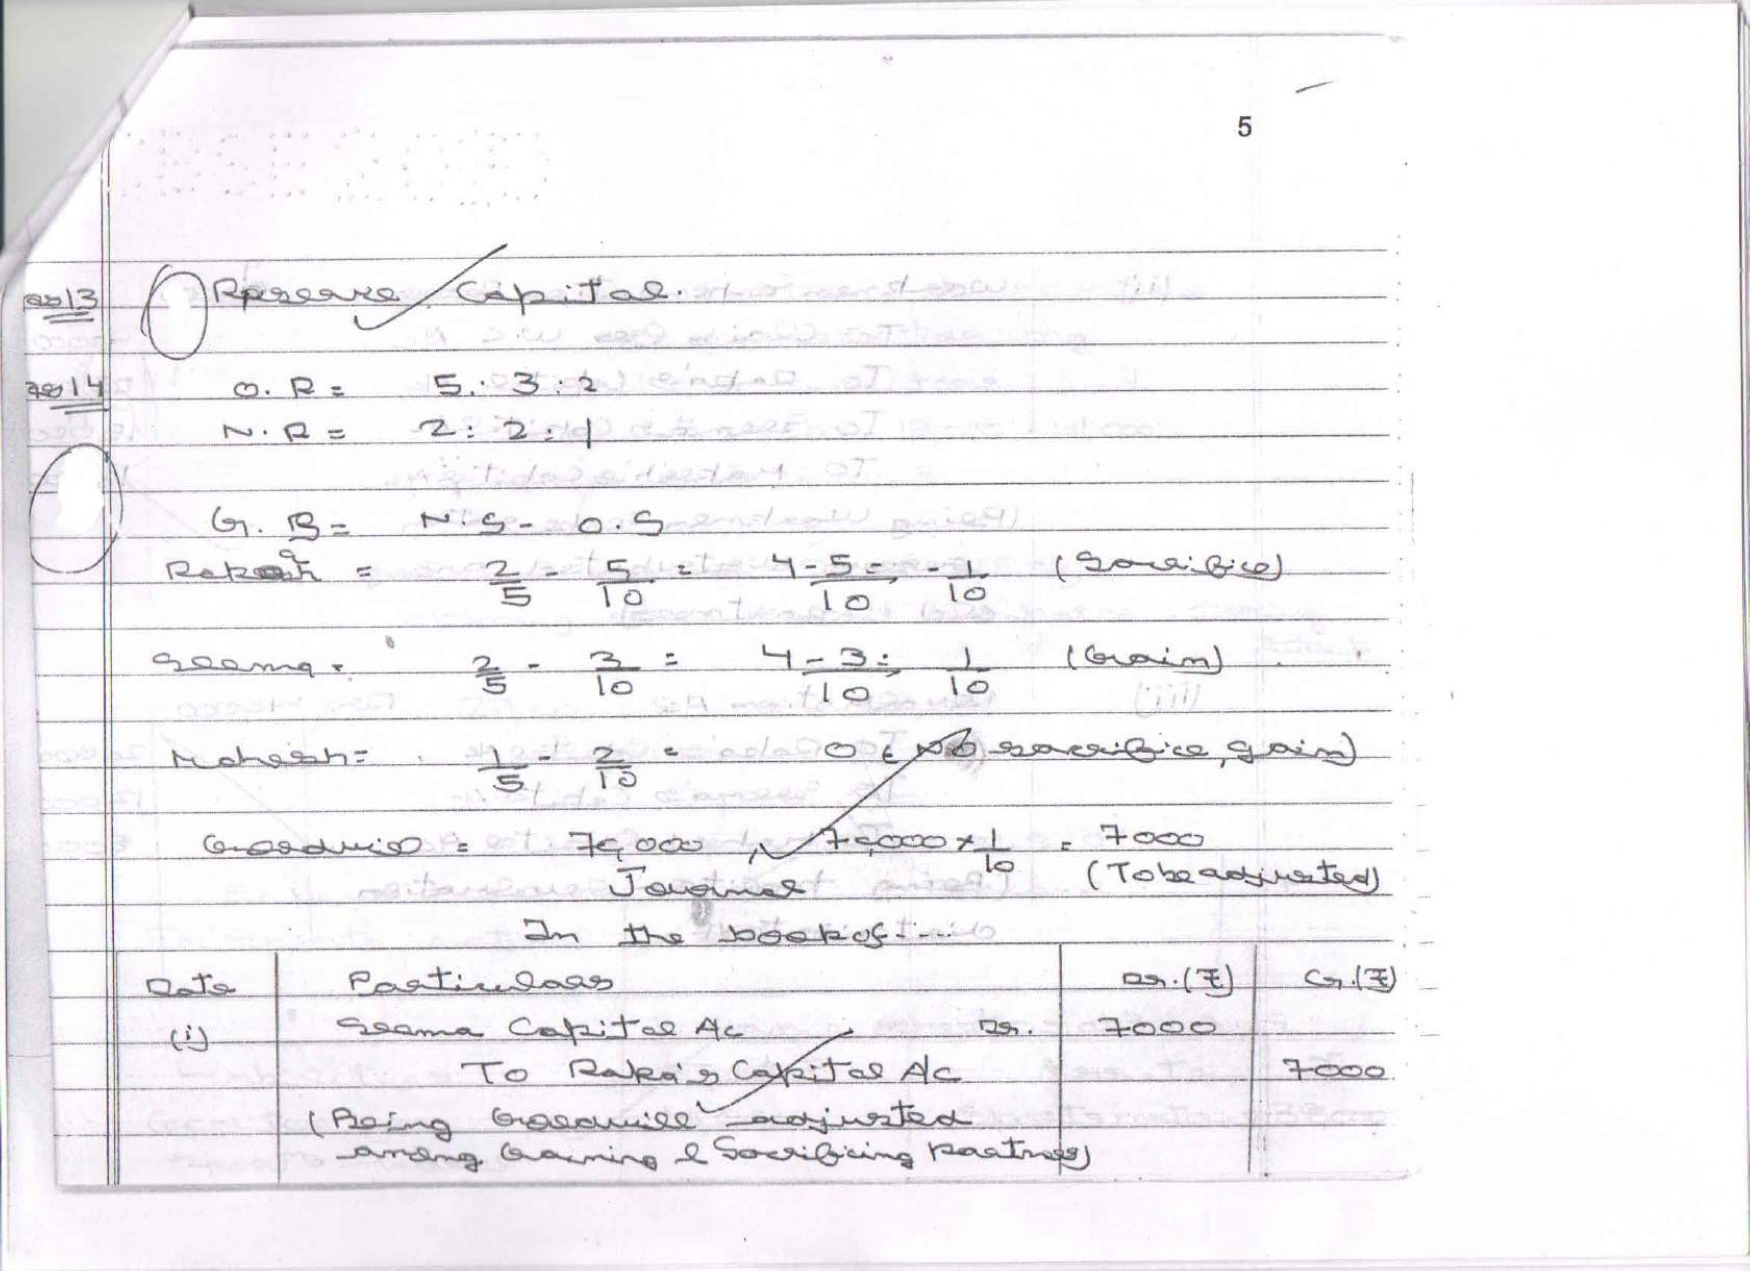 5
13 Reserve Capital.
14 O.R = 5:3:2
N.R = 2:2:1
G.R = N.S - O.S
= 2/5 - 5/10 = 4-5/10 = -1/10 (Sacrifice)
Seema = 2/5 - 3/10 = 4-3/10 = 1/10 (Gain)
Mahesh = 1/5 - 2/10 = 0 (No sacrifice, gain)
Goodwill = 70,000, 70,000 × 1/10 = 7000
Journal (To be adjusted)
In the book of ....
Date Particulars Dr.(₹) Cr.(₹)
(i) Seema Capital A/c Dr. 7000
To Raka's Capital A/c 7000
(Being Goodwill adjusted
among Gaining & Sacrificing partners)